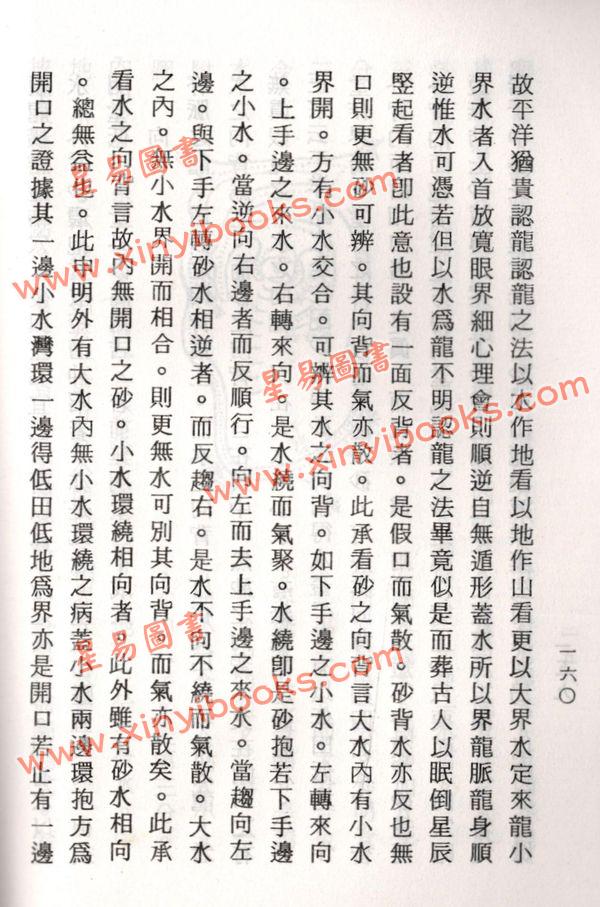 一六〇
故平洋猶貴認龍認龍之法以水作地看以地作山看更以大界水定來龍小
界水者入首放寬眼界細心理會則順逆自無遁形蓋水所以界龍脈龍身順
逆惟水可憑若但以水爲龍不明認龍之法畢竟似是而葬古人以眠倒星辰
竪起看者卽此意也設有一面反背者。是假口而氣散。砂背水亦反也無
口則更無砂可辨。其向背而氣亦散。此承看砂之向背言大水內有小水
界開。方有小水交合。可辨其水之向背。如下手邊之小水。左轉來向
。上手邊之來水。右轉來向。是水繞而氣聚。水繞卽是砂抱若下手邊
之小水。當逆向右邊者而反順行。向左而去上手邊之來水。當趨向左
邊。與下手左轉砂水相逆者。而反趨右。是水不向不繞而氣散。大水
之內。無小水界開而相合。則更無水可別其向背。而氣亦散矣。此承
看水之向背言故內無開口之砂。小水環繞相向者。此外雖有砂水相向
。總無益也。此申明外有大水內無小水環繞之病蓋小水兩邊環抱方爲
開口之證據其一邊小水灣環一邊得低田低地爲界亦是開口若止有一邊
星易圖書
www.xinyibooks.com
星易圖書
www.xinyibooks.com
星易圖書
www.xinyibooks.com
星易圖書
www.xinyibooks.com